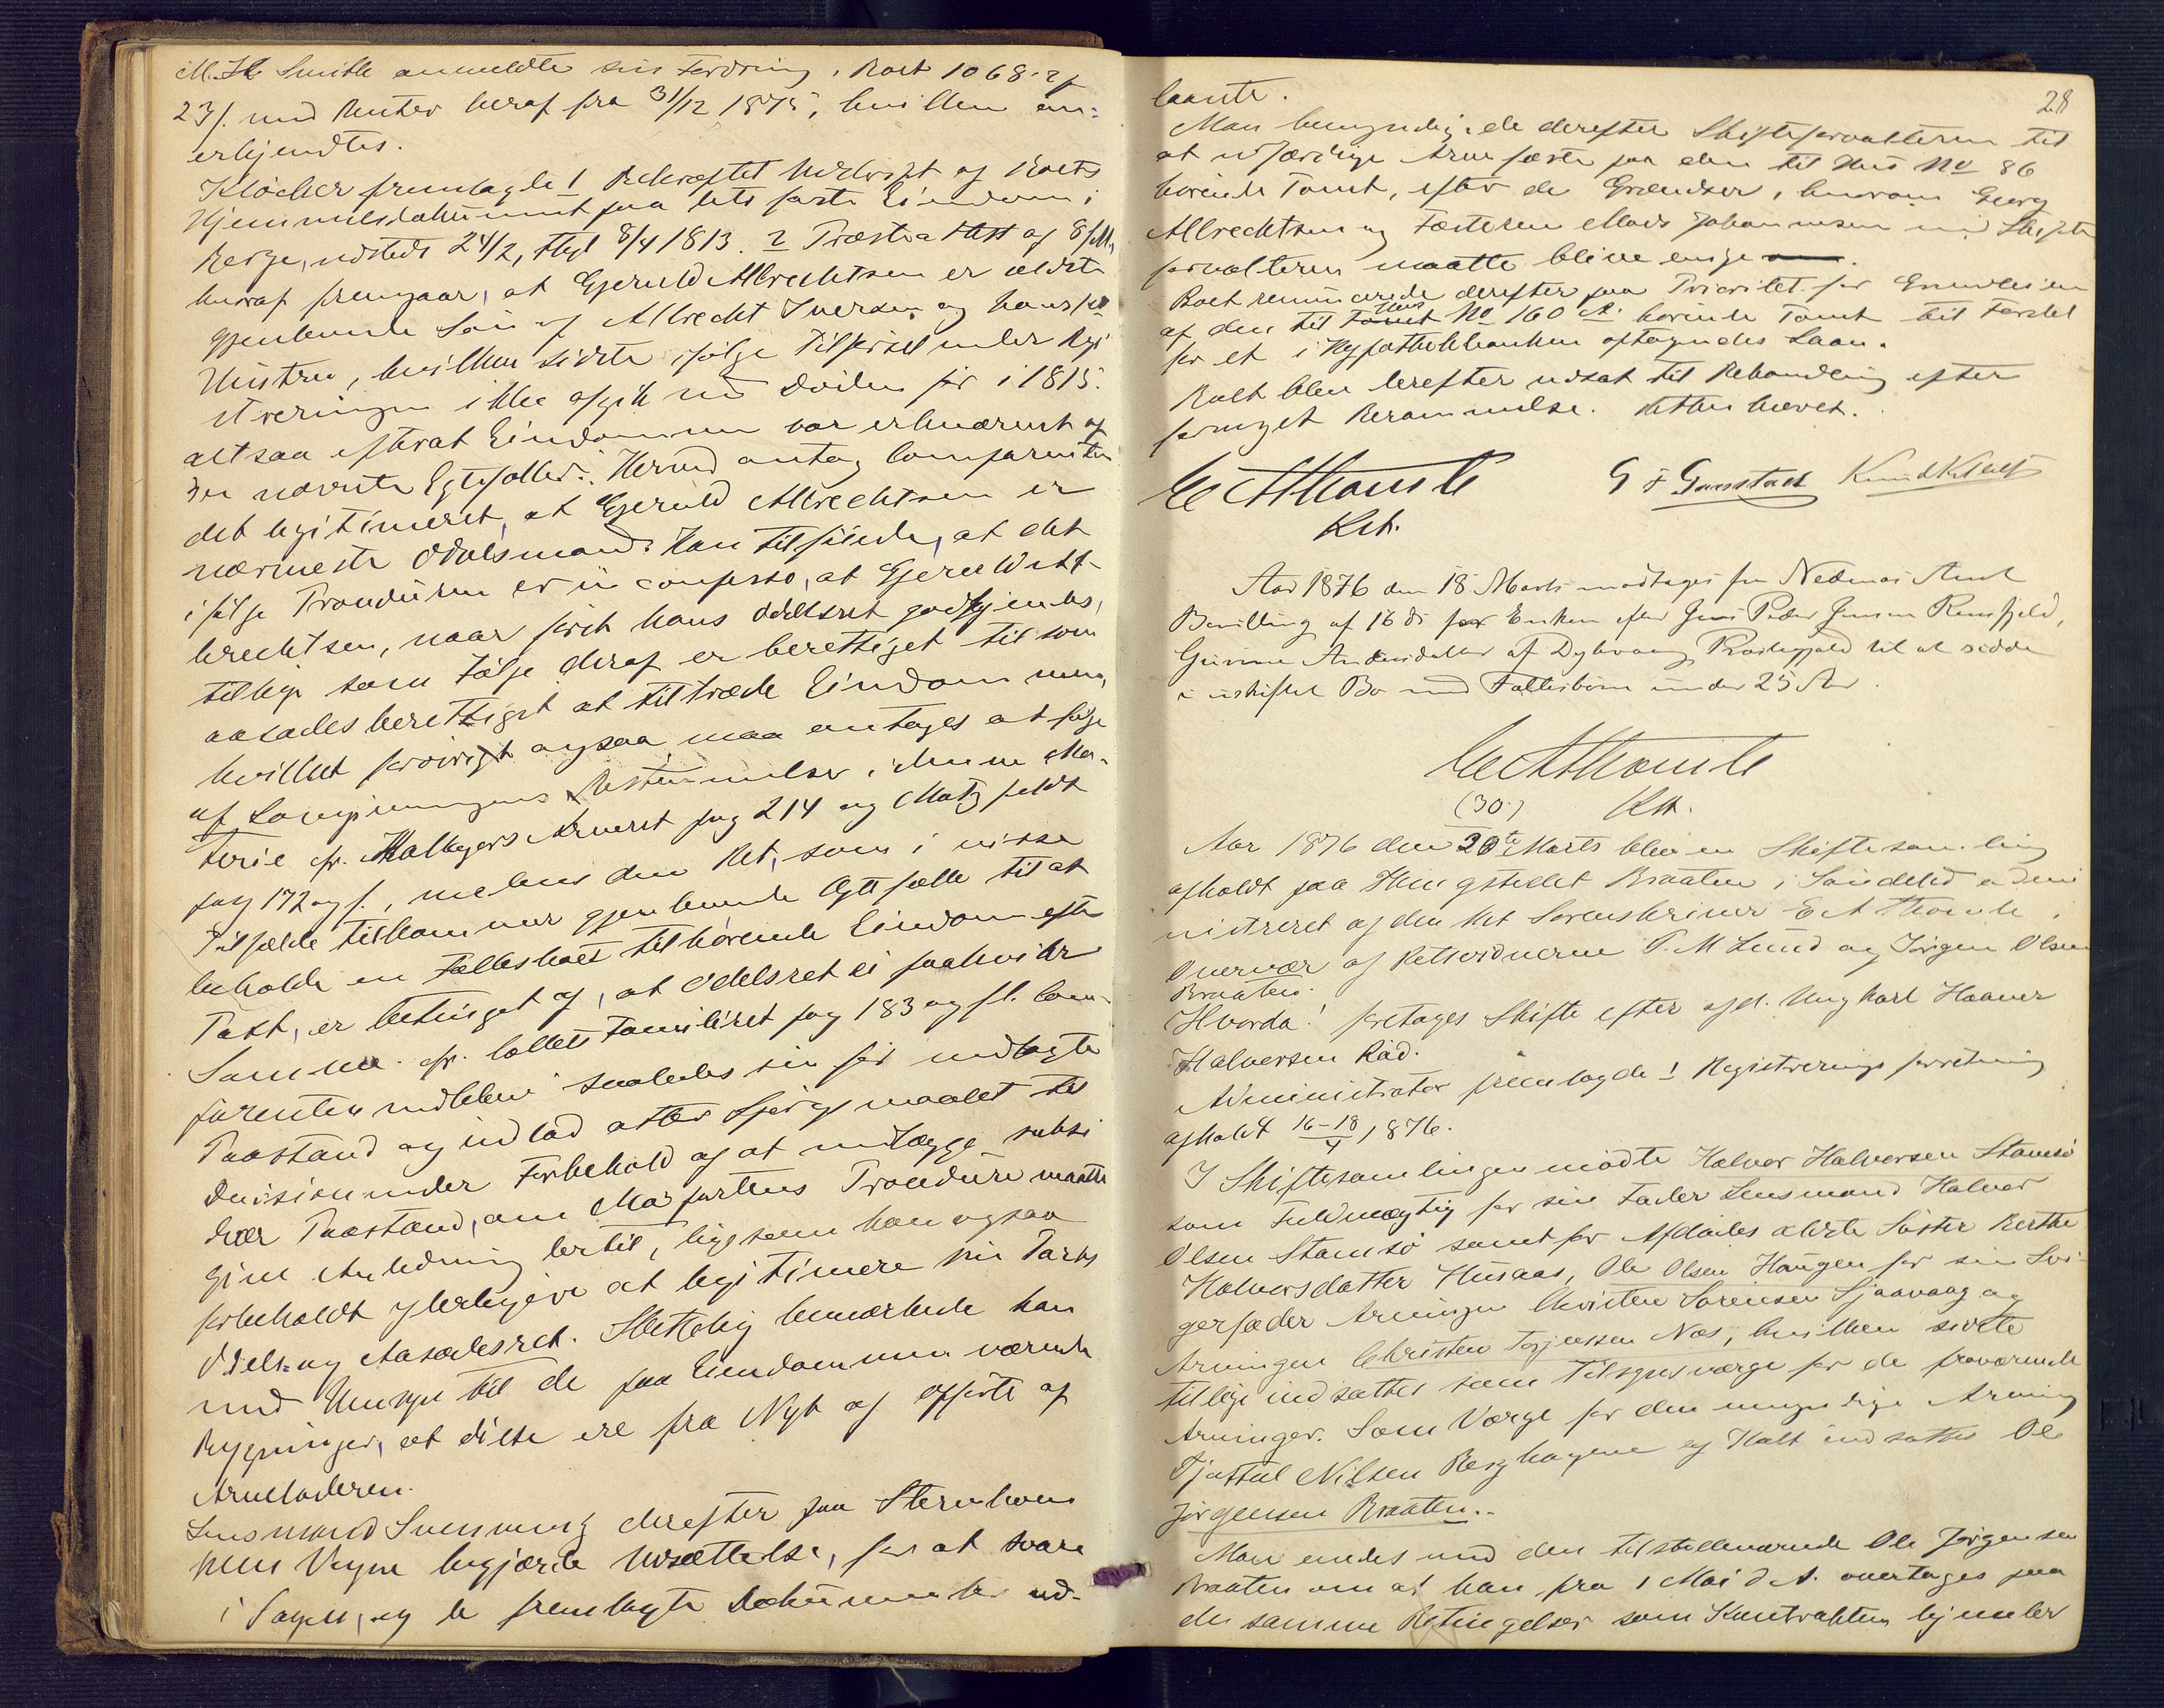 M. Smith anmeldte sin Fordring i Boet 1068
23 f. med Renter heraf fra 31/12 1875, hvilken an-
erkjendtes.
Klöcker fremlagde 1 Bekræftet Udskrift af Boets
Hjemmelsdokument paa dets faste Eiendom i
Berge, udstedt 24/2, thgl 8/4 1813. 2 Præsteattest af 8
hvoraf fremgaar, at Gjeruld Albrechtsen er ældste
gjenlevende Søn af Albrecht Iversen og hans
Hustru, hvilken sidste ifølge Tilførsel under Regi
streringen ikke afgik ved Döden för i 1815.
altsaa efterat Eiendommen var erhvervet af
de nævnte Egtefolk. Herved antog Comparenten
det legitimeret, at Gjeruld Albrechtsen er
nærmeste Odelsmand. Han tilföiede, at det
ifölge Proceduren er in confesso, at Gjeruld Al-
brechtsen, naar först hans Odelsret godkjendes,
tillige som Fölge deraf er berettiget til som
aasædesberettiget at tiltræde Eiendommen,
hvilket forövrigt ogsaa maa antages at fölge
af Lovgivningens Bestemmelser i denne Ma-
terie cfr. Hallagers Arveret pag 214 og Motzfeldt
pag 172 og f., medens den Ret, som i visse
Tilfælde tilkommer gjenlevende Egtefælle til at
beholde en Fællesboet tilhörende Eiendom efter
Taxt, er betinget af, at Odelsret ei paahviler
Samme cfr. Colletts Familieret pag 183 og fl. Com-
parenten nedlagde saaledes sin för nedlagte
Paastand og indlod atter Spörgsmaalet til
Decision under Forbehold af at nedlægge subsi
diær Paastand, om Modpartens Procedure maatte
give Anledning dertil, ligesom han ogsaa
forbeholdt yderligere at legitimere sin Parts
Odels- og Aasædesret. Sluttelig bemærkede han
med Hensyn til de paa Eiendommen værende
Bygninger, at disse ere fra Nyt af opförte af
Arveladeren.
Lensmand Svenning derefter paa
Vegne begjærte Udsættelse, for at svare
i Sagen, og de fremlagte Dokumenter ud-
28
laante.
Man bemyndigede derefter Skifteforvalteren til
at udfærdige Arvefæste paa den til Hus No 86
hörende Tomt, efter de Grændser, hvorom Georg
Albrechtsen og Fæsteren Mads Johannesen med Skifte
forvalteren maatte blive enige.
Boet renuncerede derefter paa Prioritet for
af den til Hus No 160 A. hörende Tomt til Fordel
for et i Hypothekbanken optagendes Laan.
Boet blev derefter udsat til Behandling efter
fornyet Berammelse. Retten hævet.
E A Thomle
Kst.
G F Gunstad Knud
Aar 1876 den 18 Marts modtages fra Nedenæs Amt
Bevilling af 16 ds for Enken efter Peder Jensen Rønfjeld,
Gunne Andersdatter af Dybvaag Præstegjeld til at sidde
i uskiftet Bo med Fællesbörn under 25 Aar.
E A Thomle
(30.) Kst.
Aar 1876 den 30te Marts blev en Skiftesamling
afholdt paa Thingstedet Braaten i Söndeled admi
nistreret af den kst Sorenskriver E A Thomle i
Overvær af Retsvidnerne P. M Lund og Jörgen Olsen
Braaten.
Hvorda! foretages Skifte efter afd. Ungkarl Haaver
Halvorsen Röd.
Administrator fremlagde 1 Registreringsforretning
afholdt 16–18/4 1876.
I Skiftesamlingen mödte Halvor Halvorsen Stamsö
som Fuldmægtig for sin Fader Lensmand Halvor
Olsen Stamsö samt for Afdödes ældste Söster Berthe
Halvorsdatter Husaas, Ole Olsen Haugen for sin Svi-
gerfader Arvingen Christen Sörensen Sjaavaag og
Arvingen Christen Terjessen Næs, hvilken sidste
tillige indsattes som Tilsynsværge for de fraværende
Arvinger. Som Værge for den umyndige Arving
Tjøstul Nilsen Berghagene af Holt indsattes Ole
Jörgensen Braaten.
Man enedes med den tilstedeværende Ole Jörgensen
Braaten om at han fra 1 Mai d. A. overtages paa
de samme Betingelser som Kontrakten hjemler